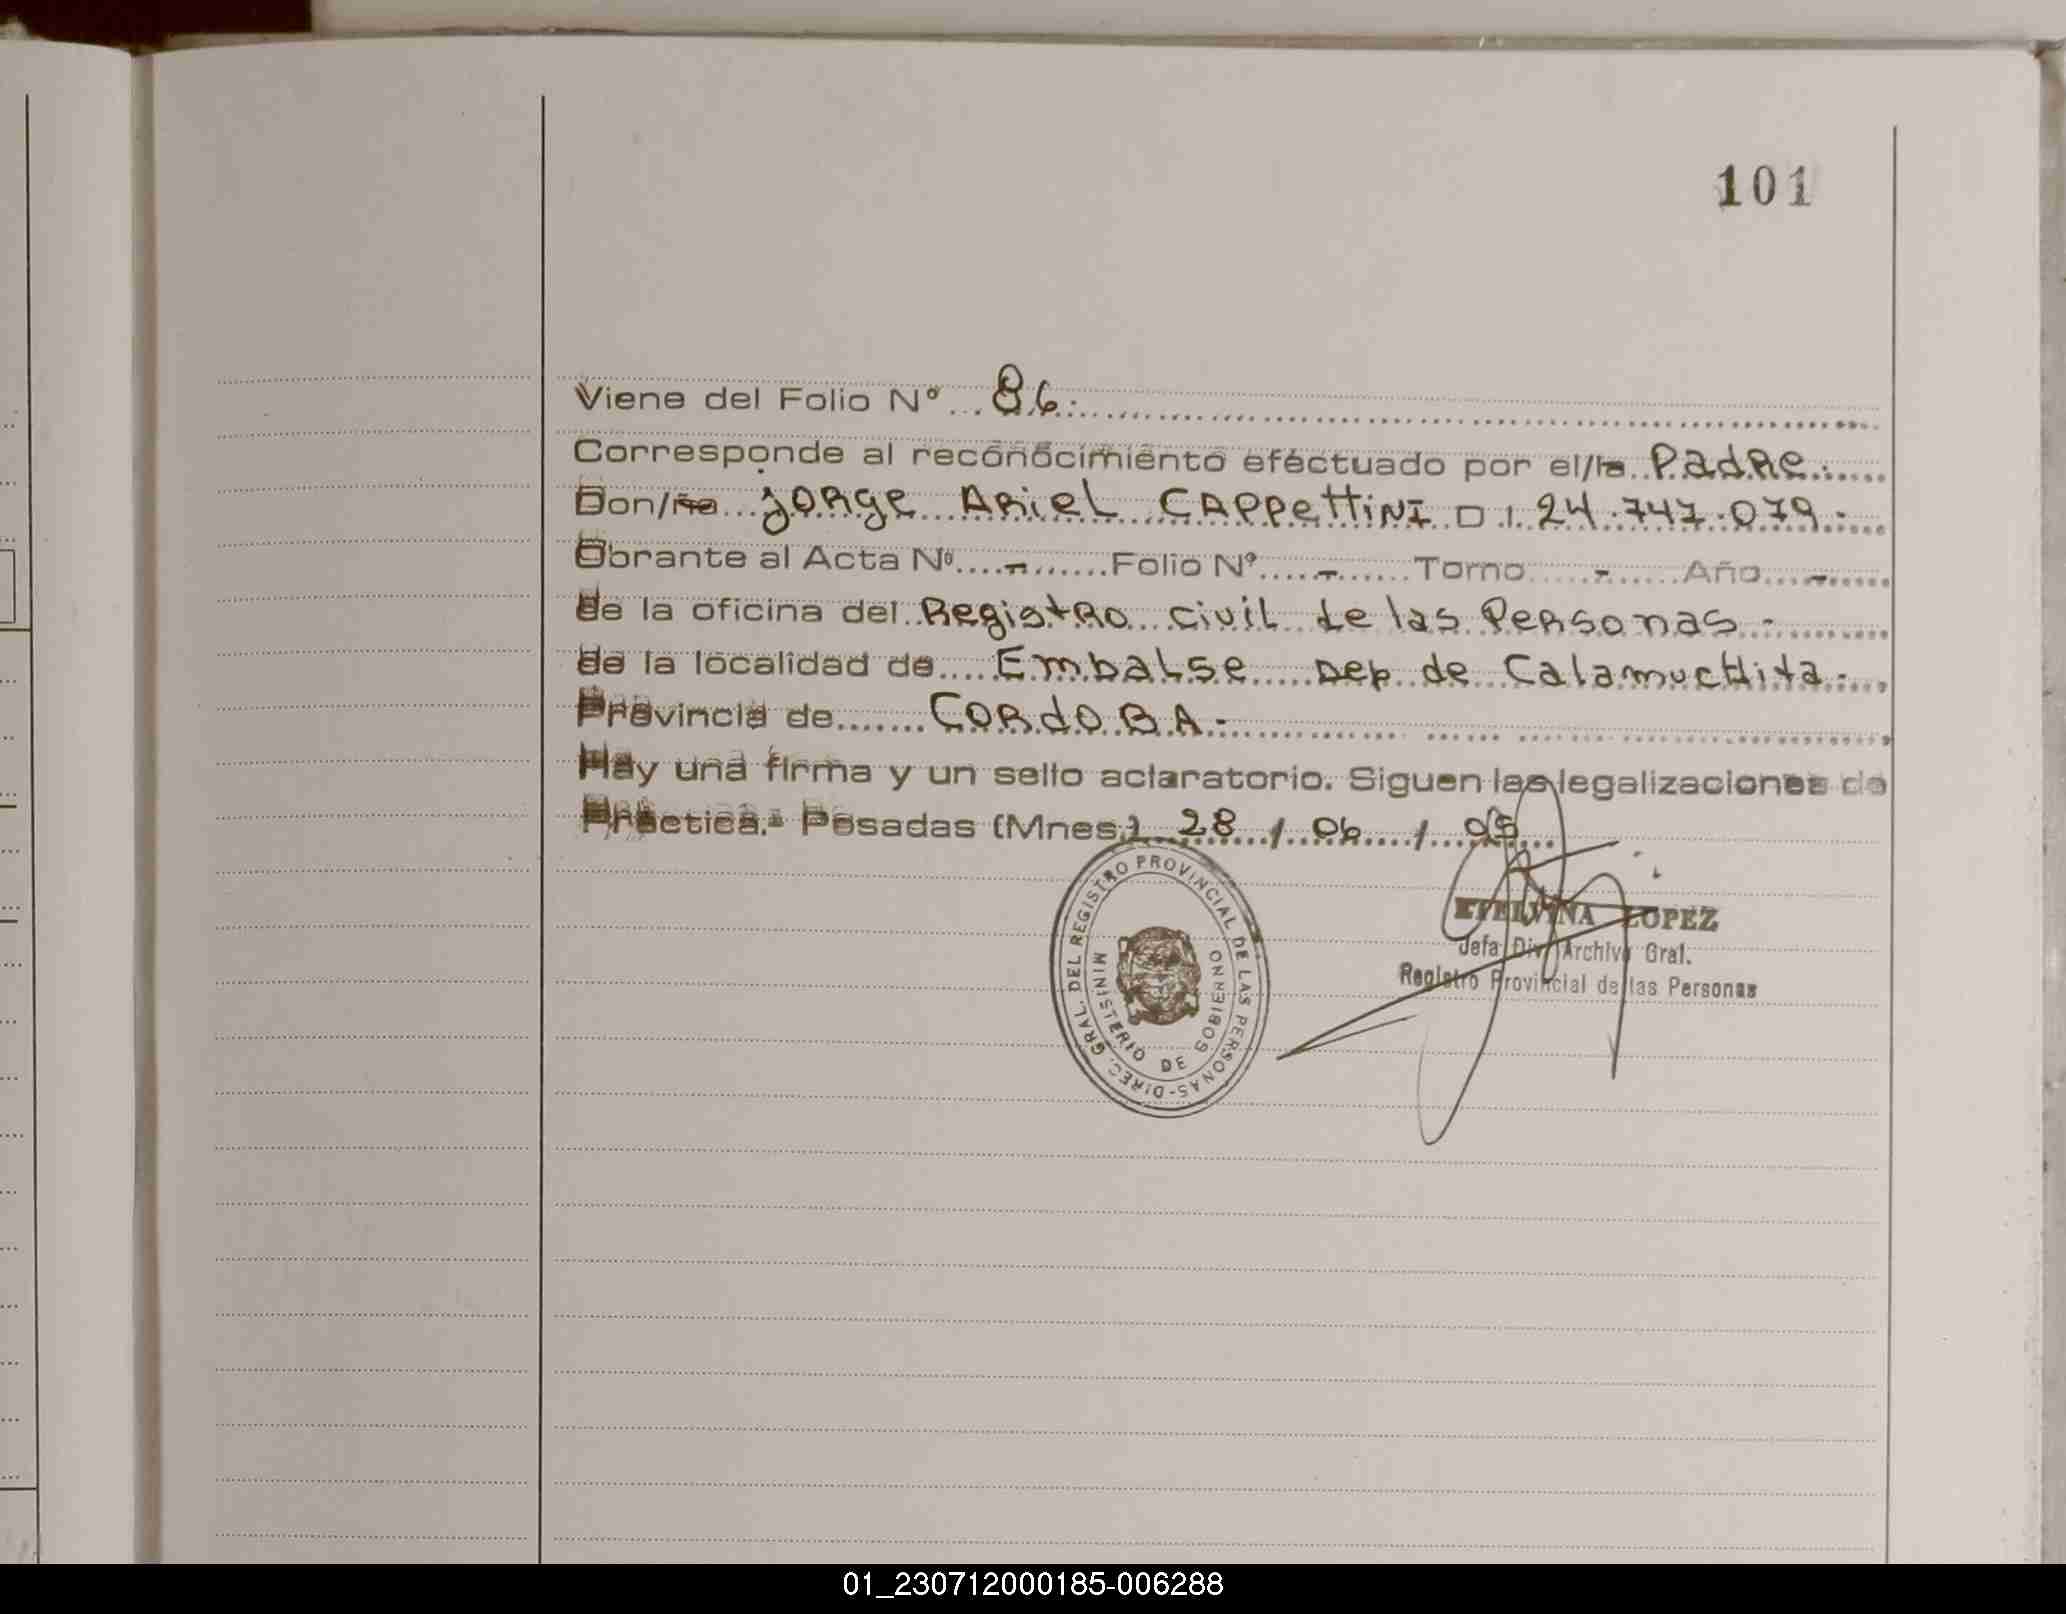 101
Viene del Folio Nº 86.
Corresponde al reconocimiento efectuado por el/la Padre.
Don/ña Jorge Ariel CAPPettiNI D.I. 24.747.079.-
Obrante al Acta Nº - Folio Nº - Tomo - Año -
de la oficina del Registro civil de las Personas -
de la localidad de Embalse Dep de Calamuchita.
Provincia de CORdOBA-
Hay una firma y un sello aclaratorio. Siguen las legalizaciones de
Práctica.- Posadas (Mnes.) 28 / 06 /
MINISTERIO DE GOBIERNO
DIREC. GRAL. DEL REGISTRO PROVINCIAL DE LAS PERSONAS-
ETELVINA LOPEZ
Jefa Div. Archivo Gral.
Registro Provincial de las Personas
01_230712000185-006288